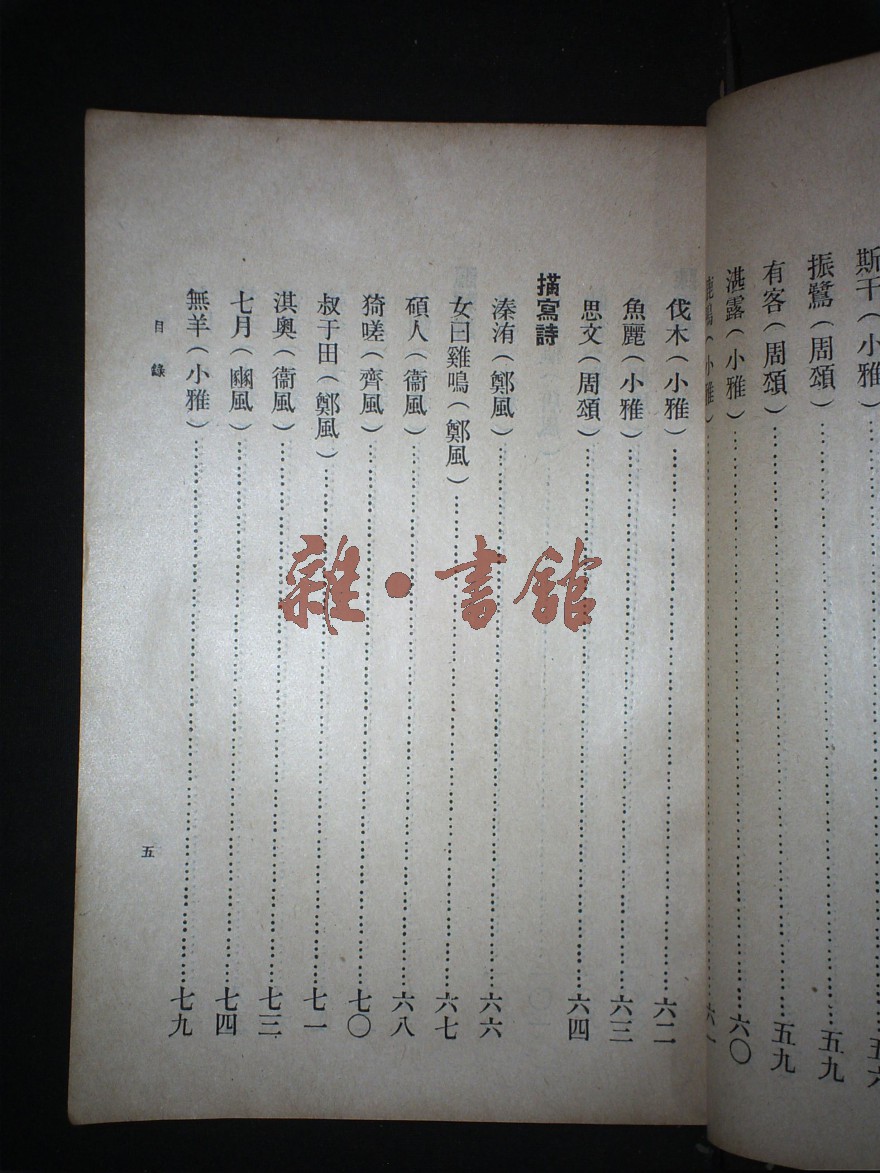 斯干(小雅)
振鷺(周頌)……五九
有客(周頌)……五九
湛露(小雅)……六〇
鹿鳴(小雅)……六一
伐木(小雅)……六二
魚麗(小雅)……六三
思文(周頌)……六四
描寫詩
溱洧(鄭風)……六六
女曰雞鳴(鄭風)……六七
碩人(衞風)……六八
猗嗟(齊風)……七〇
叔于田(鄭風)……七一
淇奧(衞風)……七三
七月(豳風)……七四
無羊(小雅)……七九
目錄
五
雜·書館